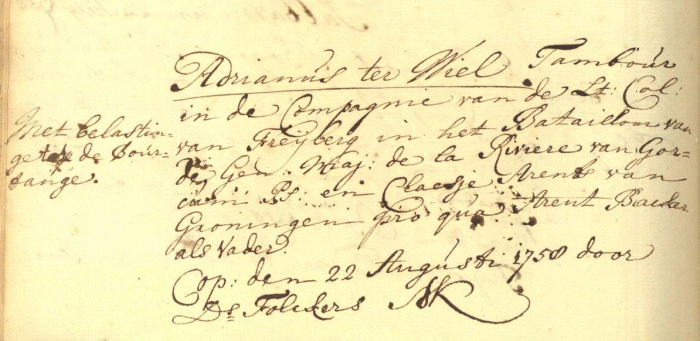 Adrianus ter Wiel Tambour
in de Compagnie van de Lt: Col:
van Freijberg in het Bataillon van
de Gen: Maj: de la Riviere van Gor-
cum Ps: en Claesje Arents van
Groningen pro qua Arent Backer
als vader.
Cop: den 22 Augusti 1758 door
Ds Folckers
Met belastin-
ge de Bour-
tange.